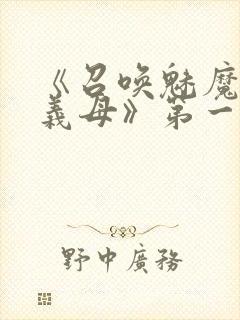 《召喚魅魔
義母》第一
野中廣務